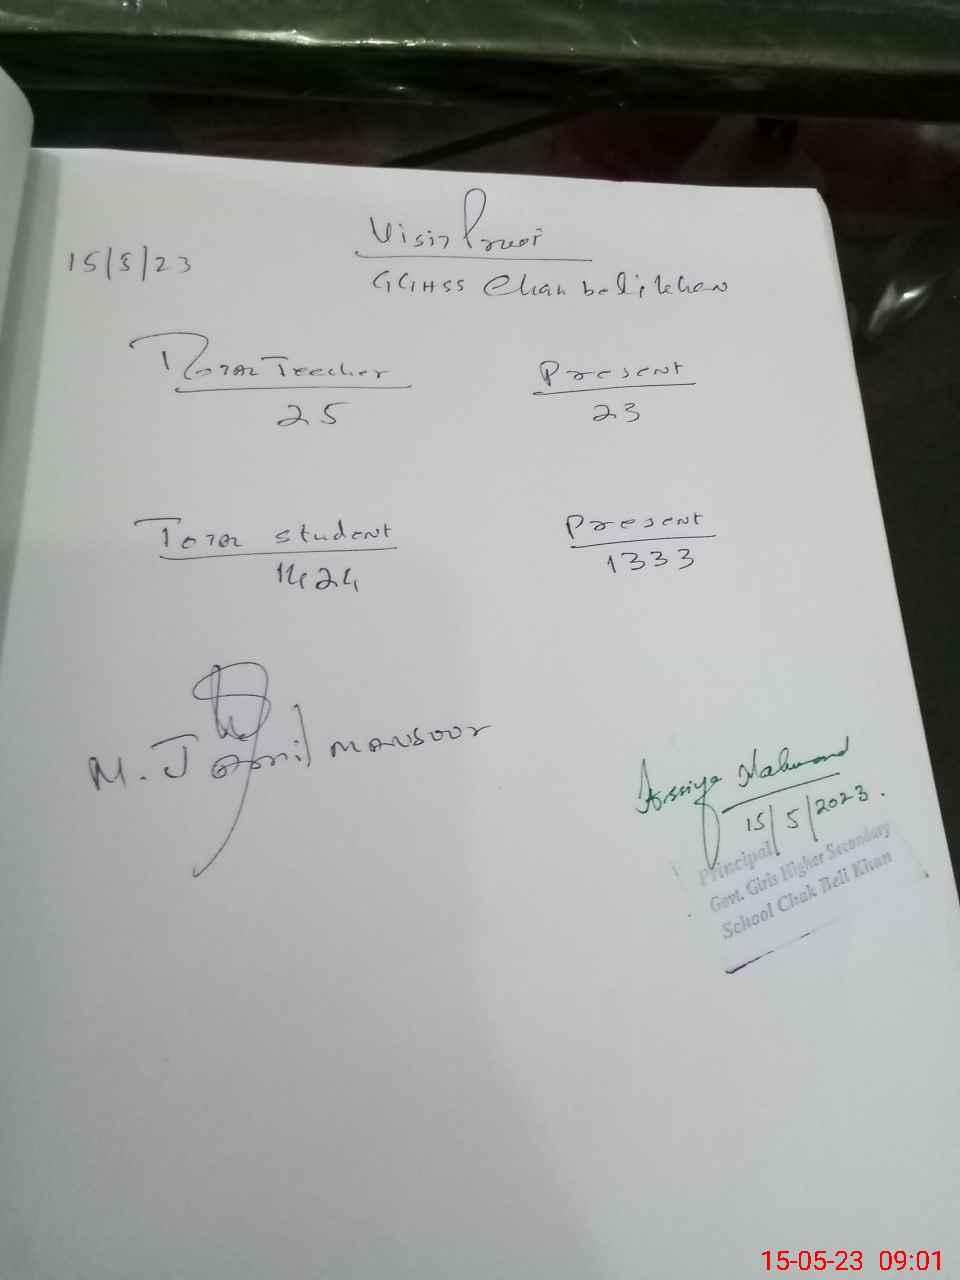 Visit Proof
15/5/23
GGHSS Chak beli khan
Total Teacher
Present
25
23
Total student
Present
1424
1333
M. Jamil mansoor
Assiya Mahmood
15/5/2023.
Principal
Govt. Girls Higher Secondary
School Chak Beli Khan
15-05-23 09:01